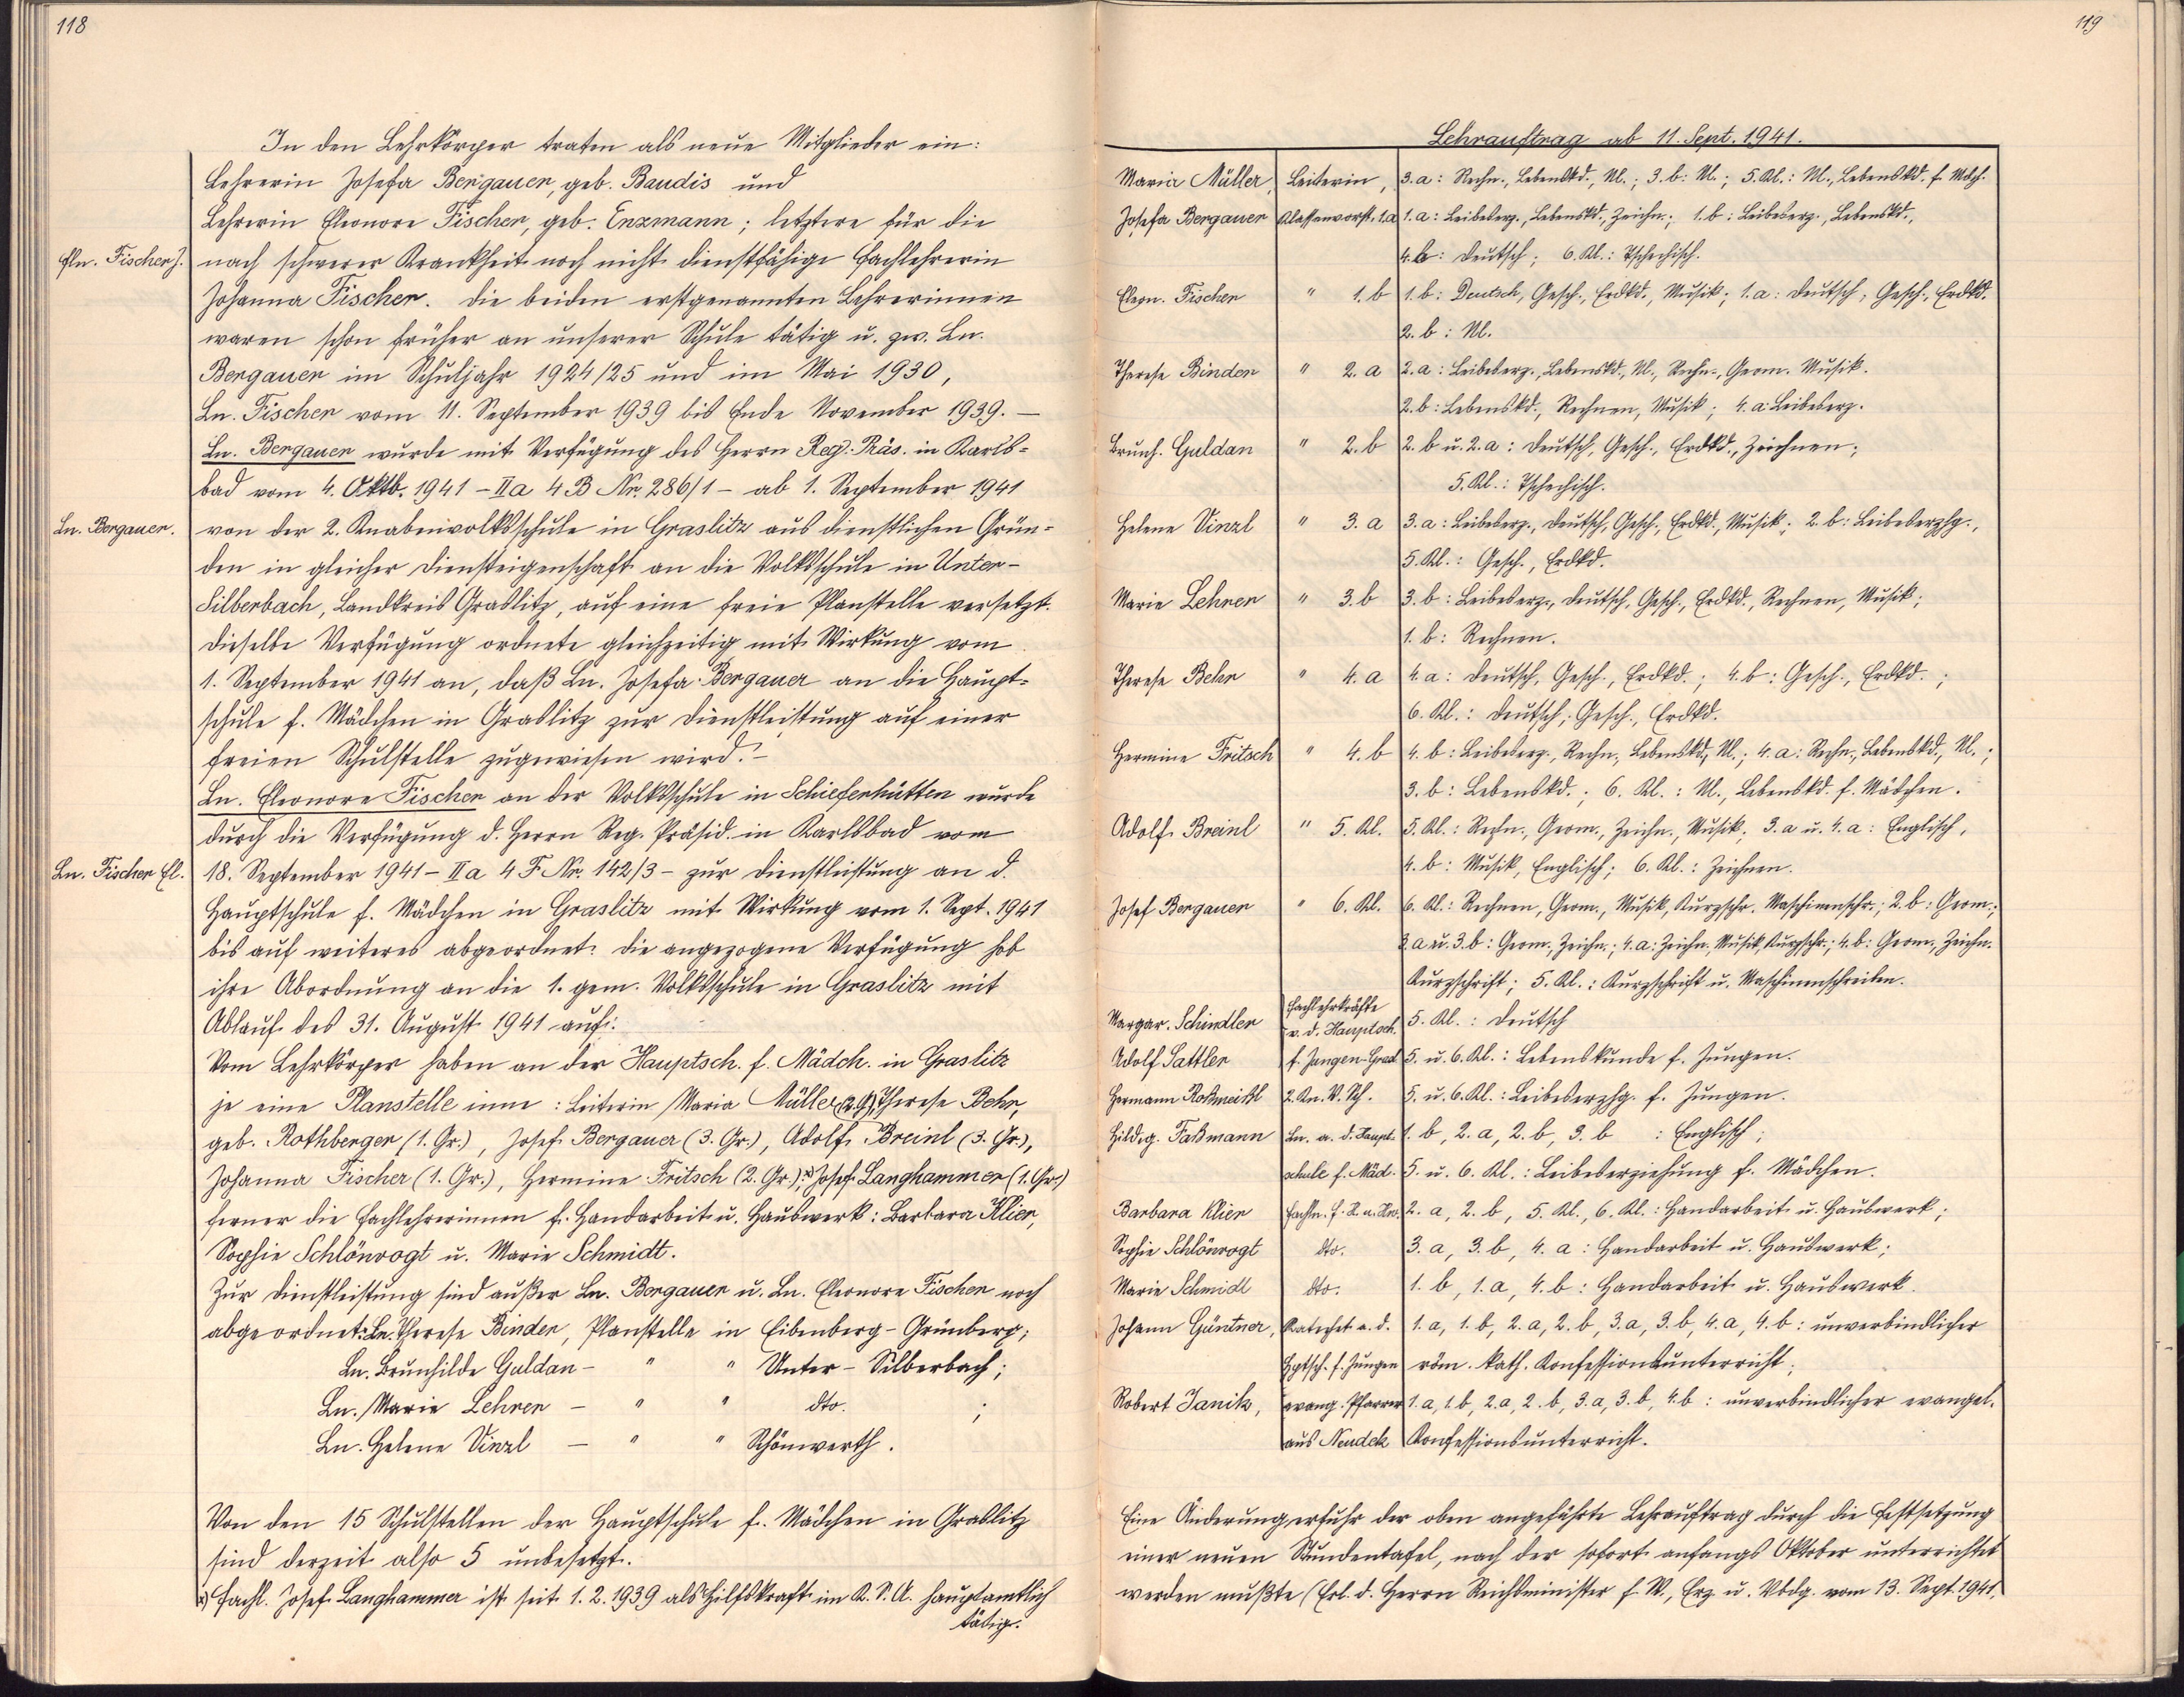 118
In den Lehrkörper traten als neue Mitglieder ein:
Lehrerin Josefa Bergauer, geb. Baudis und
Lehrerin Eleonore Fischer, geb. Enzmann; letztere für die
Fln. Fischer J.
nach schwerer Krankheit noch nicht dienstfähige Fachlehrerin
Johanna Fischer. Die beiden erstgenannten Lehrerinnen
waren schon früher an unserer Schule tätig u. zw. Ln.
Bergauer im Schuljahr 1924/25 und im Mai 1930,
Ln. Fischer vom 11. September 1939 bis Ende November 1939. –
Ln. Bergauer wurde mit Verfügung des Herrn Reg. Präs. in Karls-
bad vom 4. Oktb. 1941 – II a 4 B Nr. 286/1 – ab 1. September 1941
Ln. Bergauer.
von der 2. Knabenvolksschule in Graslitz aus dienstlichen Grün-
den in gleicher Diensteigenschaft an die Volksschule in Unter-
Silberbach, Landkreis Graslitz, auf eine freie Planstelle versetzt.
Dieselbe Verfügung ordnete gleichzeitig mit Wirkung vom
1. September 1941 an, daß Ln. Josefa Bergauer an die Haupt-
schule f. Mädchen in Graslitz zur Dienstleistung auf einer
freien Schulstelle zugewiesen wird. –
Ln. Eleonore Fischer an der Volksschule in Schieferhütten wurde
durch die Verfügung d. Herrn Reg. Präsid. in Karlsbad vom
Ln. Fischer El.
18. September 1941 – II a 4 F Nr. 142/3 – zur Dienstleistung an d.
Hauptschule f. Mädchen in Graslitz mit Wirkung vom 1. Sept. 1941
bis auf weiteres abgeordnet. Die angezogene Verfügung hob
ihre Abordnung an die 1. gem. Volksschule in Graslitz mit
Ablauf des 31. August 1941 auf.
Vom Lehrkörper haben an der Hauptsch. f. Mädch. in Graslitz
je eine Planstelle inne: Leiterin Maria Müller (2. G), Therese Behr,
geb. Rothberger (1. Gr.), Josef Bergauer (3. Gr.), Adolf Breinl (3. Gr.),
Johanna Fischer (1. Gr.), Hermine Fritsch (2. Gr.), x) Josef Langhammer (1. Gr.)
ferner die Fachlehrerinnen f. Handarbeit u. Hauswerk: Barbara Klier,
Sophie Schlönvogt u. Marie Schmidt.
Zur Dienstleistung sind außer Ln. Bergauer u. Ln. Eleonore Fischer noch
abgeordnet: Ln. Therese Binder, Planstelle in Eibenberg-Grünberg;
Ln. Brunhilde Guldan – " " Unter-Silberbach;
Ln. Marie Lehrer – " " dto. ;
Ln. Helene Vinzl – " " Schönwerth.
Von den 15 Schulstellen der Hauptschule f. Mädchen in Graslitz
sind derzeit also 5 unbesetzt.
x) Fachl. Josef Langhammer ist seit 1.2.1939 als Hilfskraft im K. S. A. hauptamtlich
tätig.
119
Lehrauftrag ab 11. Sept. 1941.
Maria Müller, Leiterin, 3. a: Rechn., Lebenskd., Nl.; 3. b: Nl.; 5. Kl.: Nl., Lebenskd. f. Mdch.
Josefa Bergauer Klassenvorst. 1. a 1. a: Leibeserz., Lebenskd., Zeichn.; 1. b: Leibeserz., Lebenskd.,
4. b: Deutsch; 6. Kl.: Tschechisch.
Eleon. Fischer " 1. b 1. b: Deutsch, Gesch., Erdkd., Musik; 1. a: Deutsch, Gesch., Erdkd.
2. b: Nl.
Therese Binder " 2. a 2. a: Leibeserz., Lebenskd., Nl., Rechn., Geom. Musik.
2. b: Lebenskd., Rechnen, Musik; 4. a: Leibeserz.
Brunh. Guldan " 2. b 2. b u. 2. a: Deutsch, Gesch., Erdkd., Zeichnen;
5. Kl.: Tschechisch.
Helene Vinzl " 3. a 3. a: Leibeserz., Deutsch, Gesch., Erdkd., Musik; 2. b: Leibeserzhg.,
5. Kl.: Gesch., Erdkd.
Marie Lehrer " 3. b 3. b: Leibeserz., Deutsch, Gesch., Erdkd., Rechnen, Musik;
1. b: Rechnen.
Therese Behr " 4. a 4. a: Deutsch, Gesch., Erdkd.; 4. b: Gesch., Erdkd. ;
6. Kl.: Deutsch, Gesch., Erdkd.
Hermine Fritsch " 4. b 4. b: Leibeserz., Rechn., Lebenskd., Nl.; 4. a: Rechn., Lebenskd., Nl.;
3. b: Lebenskd.; 6. Kl.: Nl., Lebenskd. f. Mädchen.
Adolf Breinl " 5. Kl. 5. Kl.: Rechn., Geom., Zeichn., Musik; 3. a u. 4. a: Englisch,
4. b: Musik, Englisch; 6. Kl.: Zeichnen.
Josef Bergauer " 6. Kl. 6. Kl.: Rechnen, Geom., Musik, Kurzschr. Maschinenschr.; 2. b: Geom.;
3. a u. 3. b: Geom., Zeichn.; 4. a: Zeichn. Musik, Kurzschr.; 4. b: Geom., Zeichn.
Kurzschrift; 5. Kl.: Kurzschrift u. Maschinenschreiben.
Margar. Schindler Fachlehrkräfte v. d. Hauptsch. 5. Kl.: Deutsch
Adolf Sattler f. Jungen-Gras. 5. u. 6. Kl.: Lebenskunde f. Jungen.
Hermann Roßmeißl 2. Kn. V. Sch. 5. u. 6. Kl.: Leibeserzhg. f. Jungen.
Hildeg. Faßmann Ln. a. d. Haupt- 1. b, 2. a, 2. b, 3. b : Englisch;
schule f. Mäd. 5. u. 6. Kl.: Leibeserziehung f. Mädchen.
Barbara Klier Fachln. f. H. u. Hw. 2. a, 2. b, 5. Kl., 6. Kl.: Handarbeit u. Hauswerk;
Sophie Schlönvogt dto. 3. a, 3. b, 4. a: Handarbeit u. Hauswerk;
Marie Schmidt dto. 1. b, 1. a, 4. b: Handarbeit u. Hauswerk.
Johann Güntner, Katechet a. d. 1. a, 1. b, 2. a, 2. b, 3. a, 3. b, 4. a, 4. b: unverbindlicher
Hptsch. f. Jungen röm. kath. Konfessionsunterricht;
Robert Janik, evang. Pfarrer 1. a, 1. b, 2. a, 2. b, 3. a, 3. b, 4. b: unverbindlicher evangel.
aus Neudek Konfessionsunterricht.
Eine Änderung erfuhr der oben angeführte Lehrauftrag durch die Festsetzung
einer neuen Stundentafel, nach der sofort anfangs Oktober unterrichtet
werden mußte (Erl. d. Herrn Reichsminister f. W., Erz. u. Vbdg. vom 13. Sept. 1941,